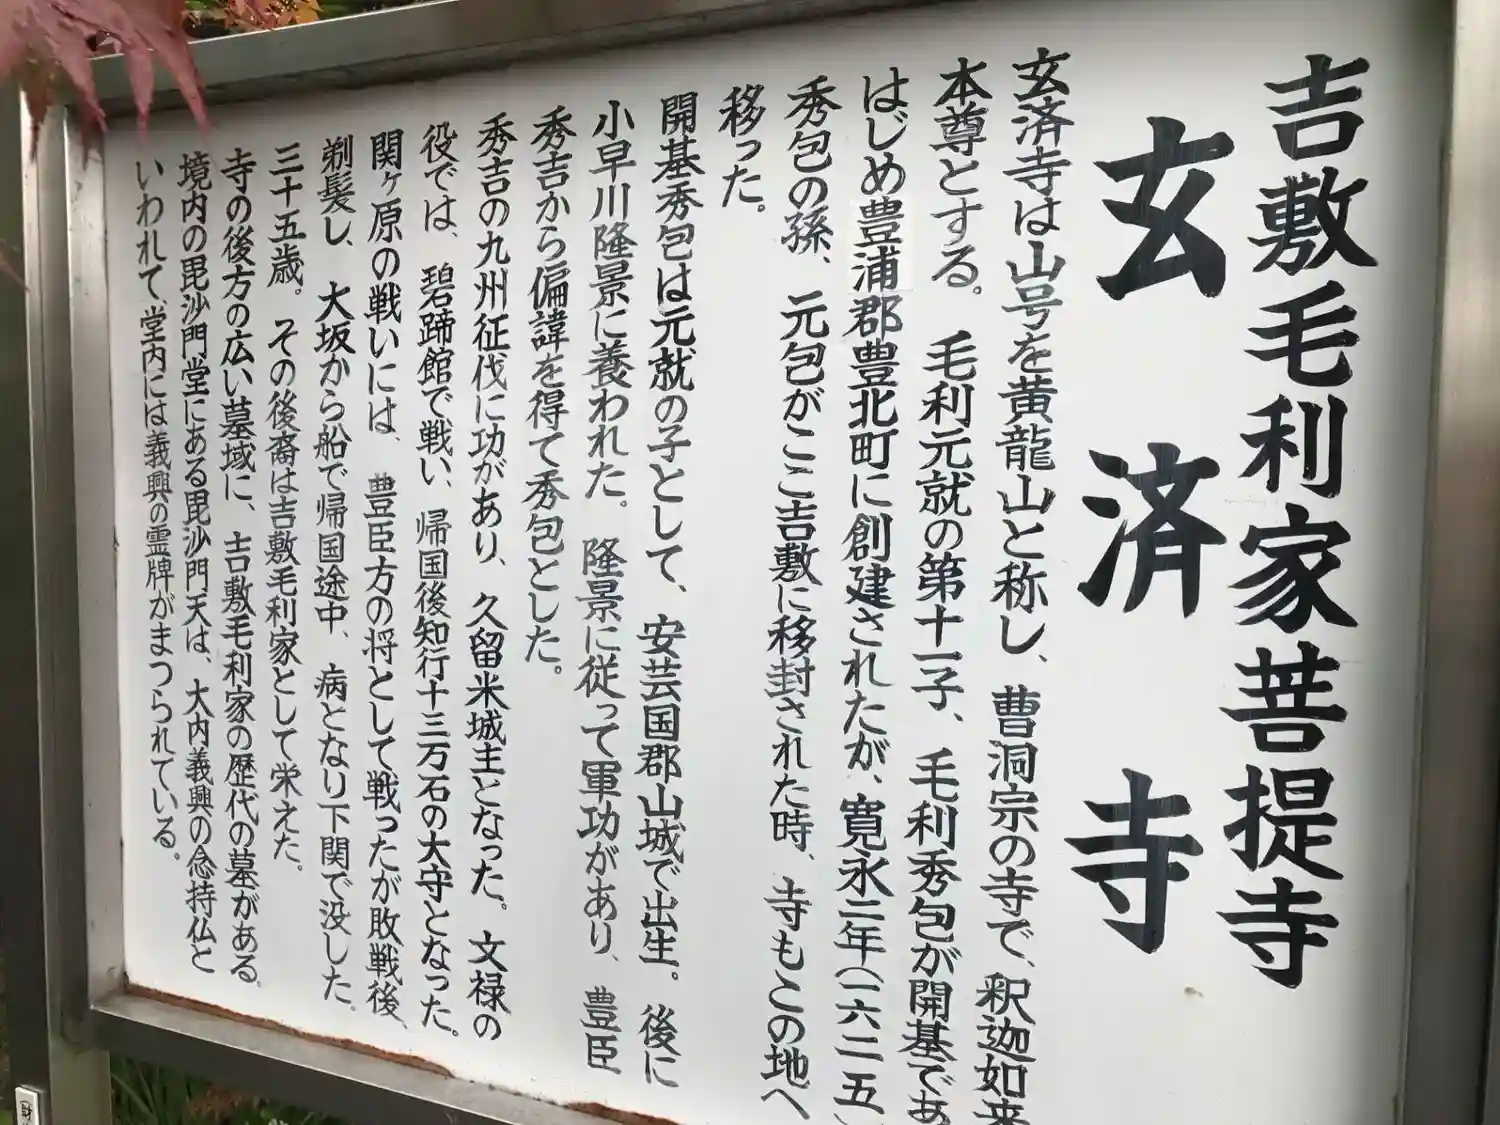 吉敷毛利家菩提寺
玄済寺
玄済寺は山号を黄龍山と称し、曹洞宗の寺で、釈迦如来
本尊とする。毛利元就の第十一子、毛利秀包が開基であ
はじめ豊浦郡豊北町に創建されたが、寛永二年(一六二五)
秀包の孫、元包がここ吉敷に移封された時、寺もこの地へ
移った。
開基秀包は元就の子として、安芸国郡山城で出生。後に
小早川隆景に養われた。隆景に従って軍功があり、豊臣
秀吉から偏諱を得て秀包とした。
秀吉の九州征伐に功があり、久留米城主となった。文禄の
役では、碧蹄館で戦い、帰国後知行十三万石の大守となった。
関ヶ原の戦いには、豊臣方の将として戦ったが敗戦後、
剃髪し、大坂から船で帰国途中、病となり下関で没した。
三十五歳。その後裔は吉敷毛利家として栄えた。
寺の後方の広い墓域に、吉敷毛利家の歴代の墓がある。
境内の毘沙門堂にある毘沙門天は、大内義興の念持仏と
いわれて、堂内には義興の霊牌がまつられている。